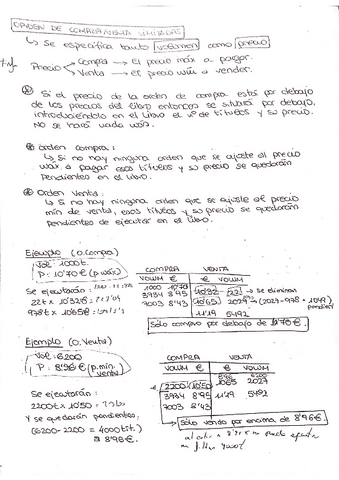 ORDEN DE COMPRAVENTA LIMITADAS
↳ Se especifica tanto volumen como precio
Precio Compra → El precio máx a pagar.
Venta → El precio mín a vender.
Si el precio de la orden de compra está por debajo
de los precios del libro entonces se situará por debajo,
introduciéndolo en el libro el nº de títulos y su precio.
No se hará nada más.
orden compra:
↳ Si no hay ninguna orden que se ajuste al precio
máx a pagar esos títulos y su precio se quedarán
pendientes en el libro.
orden Venta:
↳ Si no hay ninguna orden que se ajuste al precio
mín de venta, esos títulos y su precio se quedarán
pendientes de ejecutar en el libro.
Ejemplo (O.Compra)
Vol: 1000t.
P: 10'70€ (p.máx)
Se ejecutarán:
22t x 10'32€
978t x 10'65€
COMPRA VENTA
VOLUM € € VOLUM
1000 10'70
3934 8'95 Se eliminan
7003 8'43 10'65 2027
11'19 5492
Sólo compro por debajo de 10'70€
Ejemplo (O.Venta)
Vol: 6200
P: 8'96€ (p.mín. venta)
Se ejecutarán:
2200t x 10'50
Y se quedarán pendientes,
(6200-2200 = 4000 tít.)
a 8'96€.
COMPRA VENTA
VOLUM € € VOLUM
8'96 6200
2200 10'50 10'65 2027
3934 8'95 11'19 5492
7003 8'43
Sólo vendo por encima de 8'96€